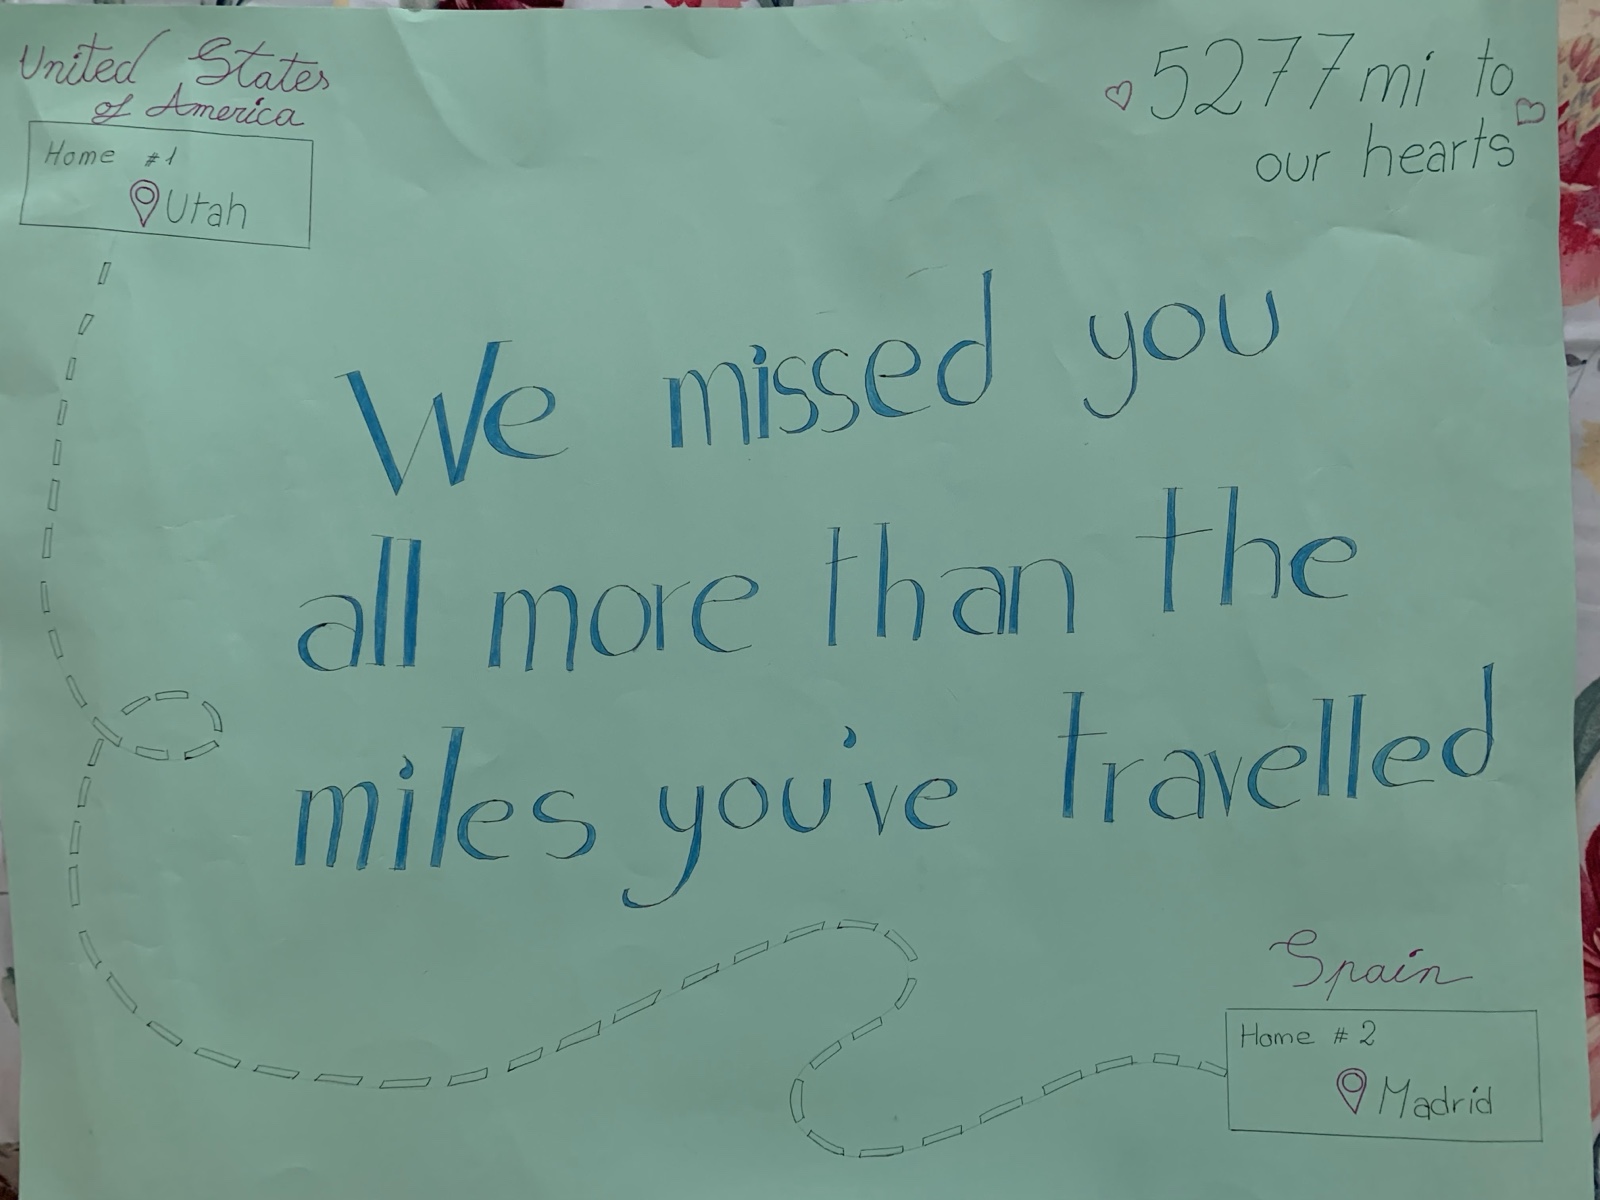 United States
of America
Home #1
Utah
5277 mi to
our hearts
We missed you
all more than the
miles you've travelled
Spain
Home #2
Madrid